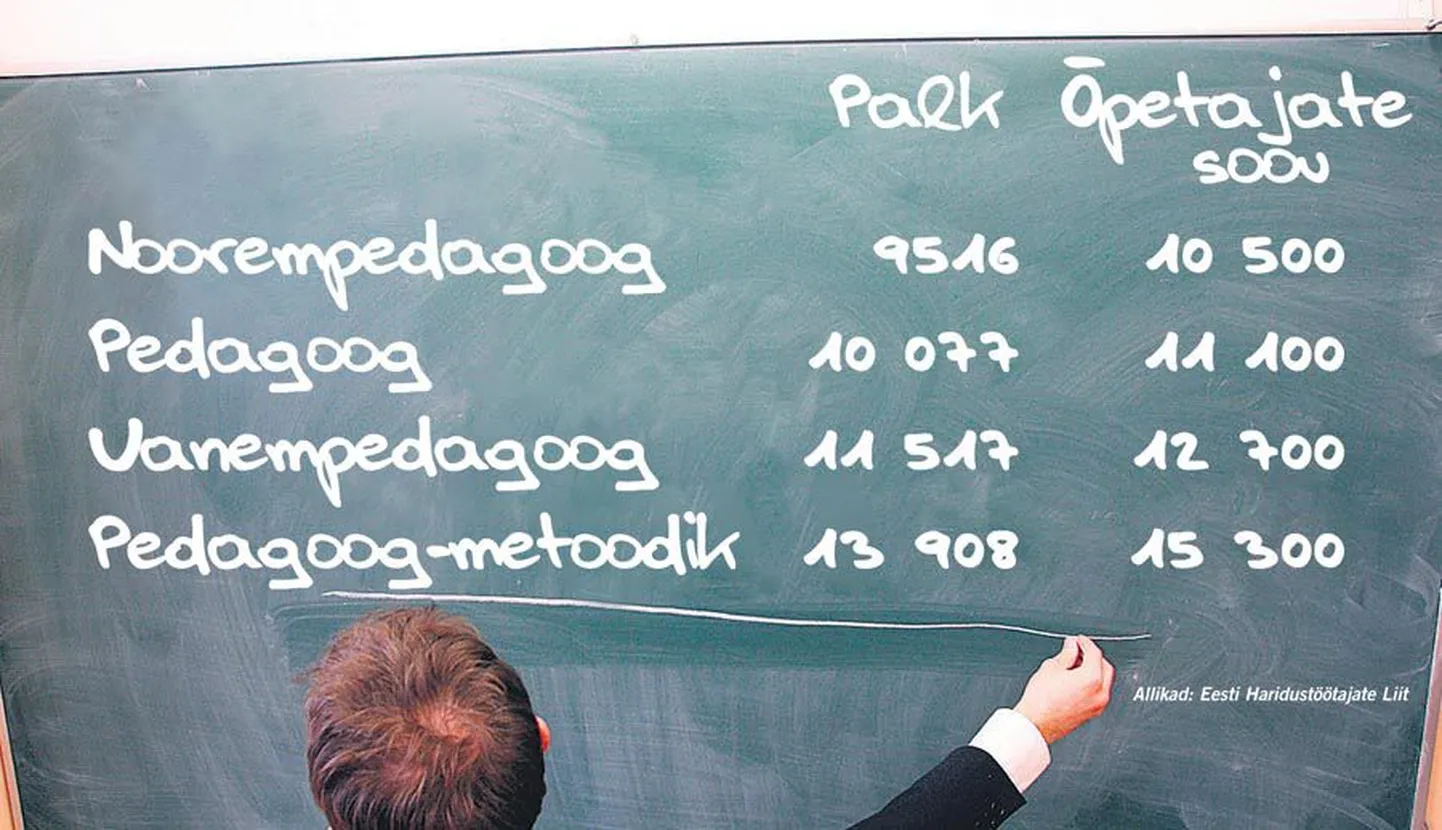 Palk Õpetajate
soov
Noorempedagoog 9516 10 500
Pedagoog 10 077 11 100
Vanempedagoog 11 517 12 700
Pedagoog-metoodik 13 908 15 300
Allikad: Eesti Haridustöötajate Liit